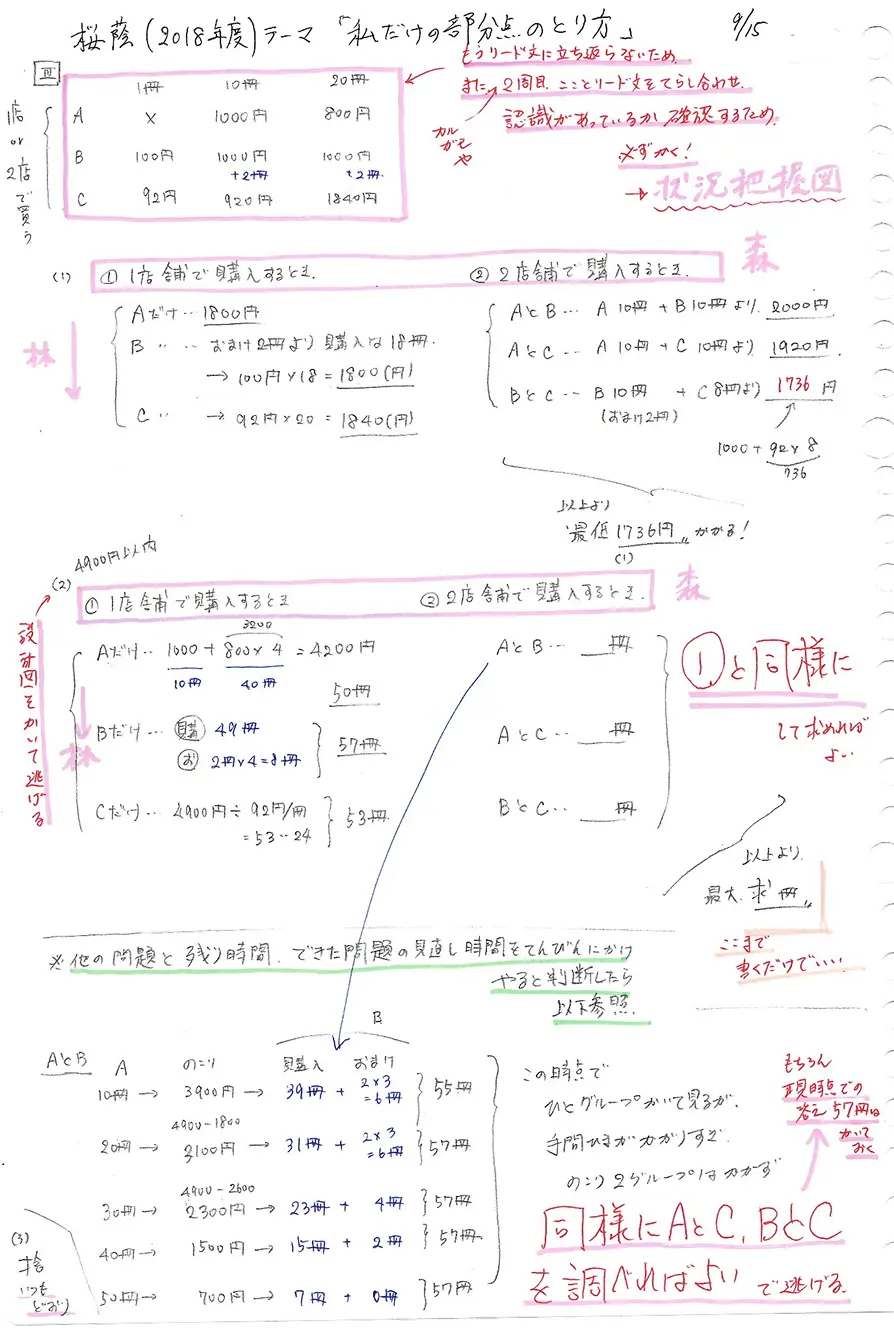 桜蔭(2018年度)テーマ「私だけの部分点のとり方」 9/15
Ⅲ
1冊 10冊 20冊
A × 1000円 800円
B 100円 1000円 1000円
+2冊 +2冊
C 92円 920円 1840円
1店or2店で買う
もうリード文に立ち返らないため、
また、2周目、こことリード文をてらし合わせ、
認識があっているか確認するため、
必ずかく!
→状況把握図
(1) ① 1店舗で購入するとき、 ② 2店舗で購入するとき、
森
林
Aだけ…1800円
B 〃 … おまけ2冊より購入は18冊、
→ 100円×18=1800(円)
C 〃 → 92円×20=1840(円)
AとB… A 10冊 + B 10冊より、2000円
AとC… A 10冊 + C 10冊より 1920円、
BとC… B 10冊 + C 8冊より 1736 円
(おまけ2冊)
1000+92×8
736
以上より
最低1736円〃かかる!
(1)
4900円以内
(2) ① 1店舗で購入するとき ② 2店舗で購入するとき、
森
設計図をかいて逃げる
林
3200
Aだけ… 1000+800×4=4200円
10冊 40冊
50冊
Bだけ… 購 49冊
お 2冊×4=8冊
57冊
Cだけ… 4900円÷92円/冊
=53…24
53冊
AとB… 冊
AとC… 冊
BとC… 冊
①と同様に
して求めれば
よい
以上より、
最大、求冊〃
ここまで
書くだけでいい!
※他の問題と残り時間、できた問題の見直し時間をてんびんにかけ
やると判断したら
以下参照、
B
AとB A のこり 購入 おまけ
10冊→ 3900円→ 39冊 + 2×3=6冊 55冊
4900-1800
20冊→ 3100円→ 31冊 + 2×3=6冊 57冊
4900-2600
30冊→ 2300円→ 23冊 + 4冊 57冊
40冊→ 1500円→ 15冊 + 2冊 57冊
50冊→ 700円→ 7冊 + 0冊 57冊
この時点で
ひとグループかいて見るが、
手間ひまがかかりすぎ、
のこり2グループはかかず
もちろん
現時点での
答え57冊は
かいて
おく
同様にAとC、BとC
を調べればよい で逃げる、
(3)
捨
いつも
どおり